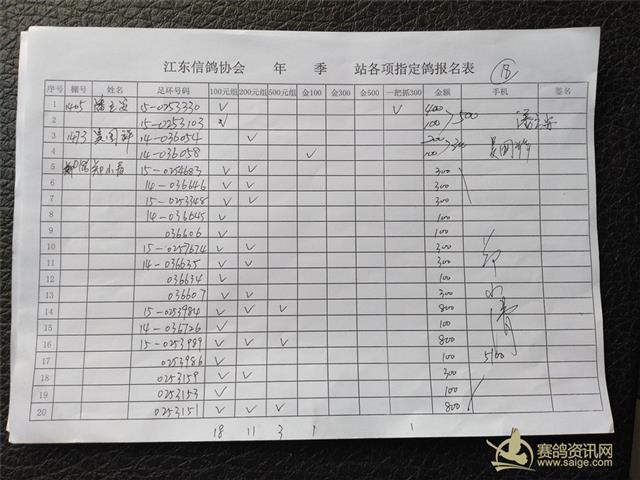 江东信鸽协会 年 季 站各项指定鸽报名表 18
序号 棚号 姓名 足环号码 100元组 200元组 500元组 金100 金300 金500 一把抓300 金额 手机 签名
1 1405 15-0253330 ✓ ✓ 400
2 15-0253103 ✓ 100 500
3 14-036054 ✓ 200
4 14-036058 ✓ 100
5 15-0254683 ✓ ✓ 300
6 14-036646 ✓ ✓ 300
7 15-0253348 ✓ ✓ 300
8 14-036645 ✓ 100
9 036606 ✓ 100
10 15-0257674 ✓ ✓ 300
11 14-036635 ✓ ✓ 300
12 036634 ✓ 100
13 036607 ✓ ✓ 300
14 15-0253984 ✓ ✓ ✓ 800
15 14-036726 ✓ 100
16 15-0253989 ✓ ✓ ✓ 800
17 0253986 ✓ 100 5100
18 0253159 ✓ ✓ 300
19 0253153 ✓ 100
20 0253151 ✓ ✓ ✓ 800
18 11 3 1 1
赛鸽资讯网
www.saige.com